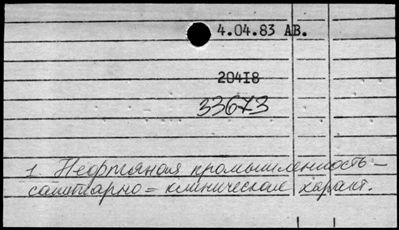 4.04.83 АВ.
20418
33673
1. Нефтяная промышленность –
санитарно = клиническая характ.